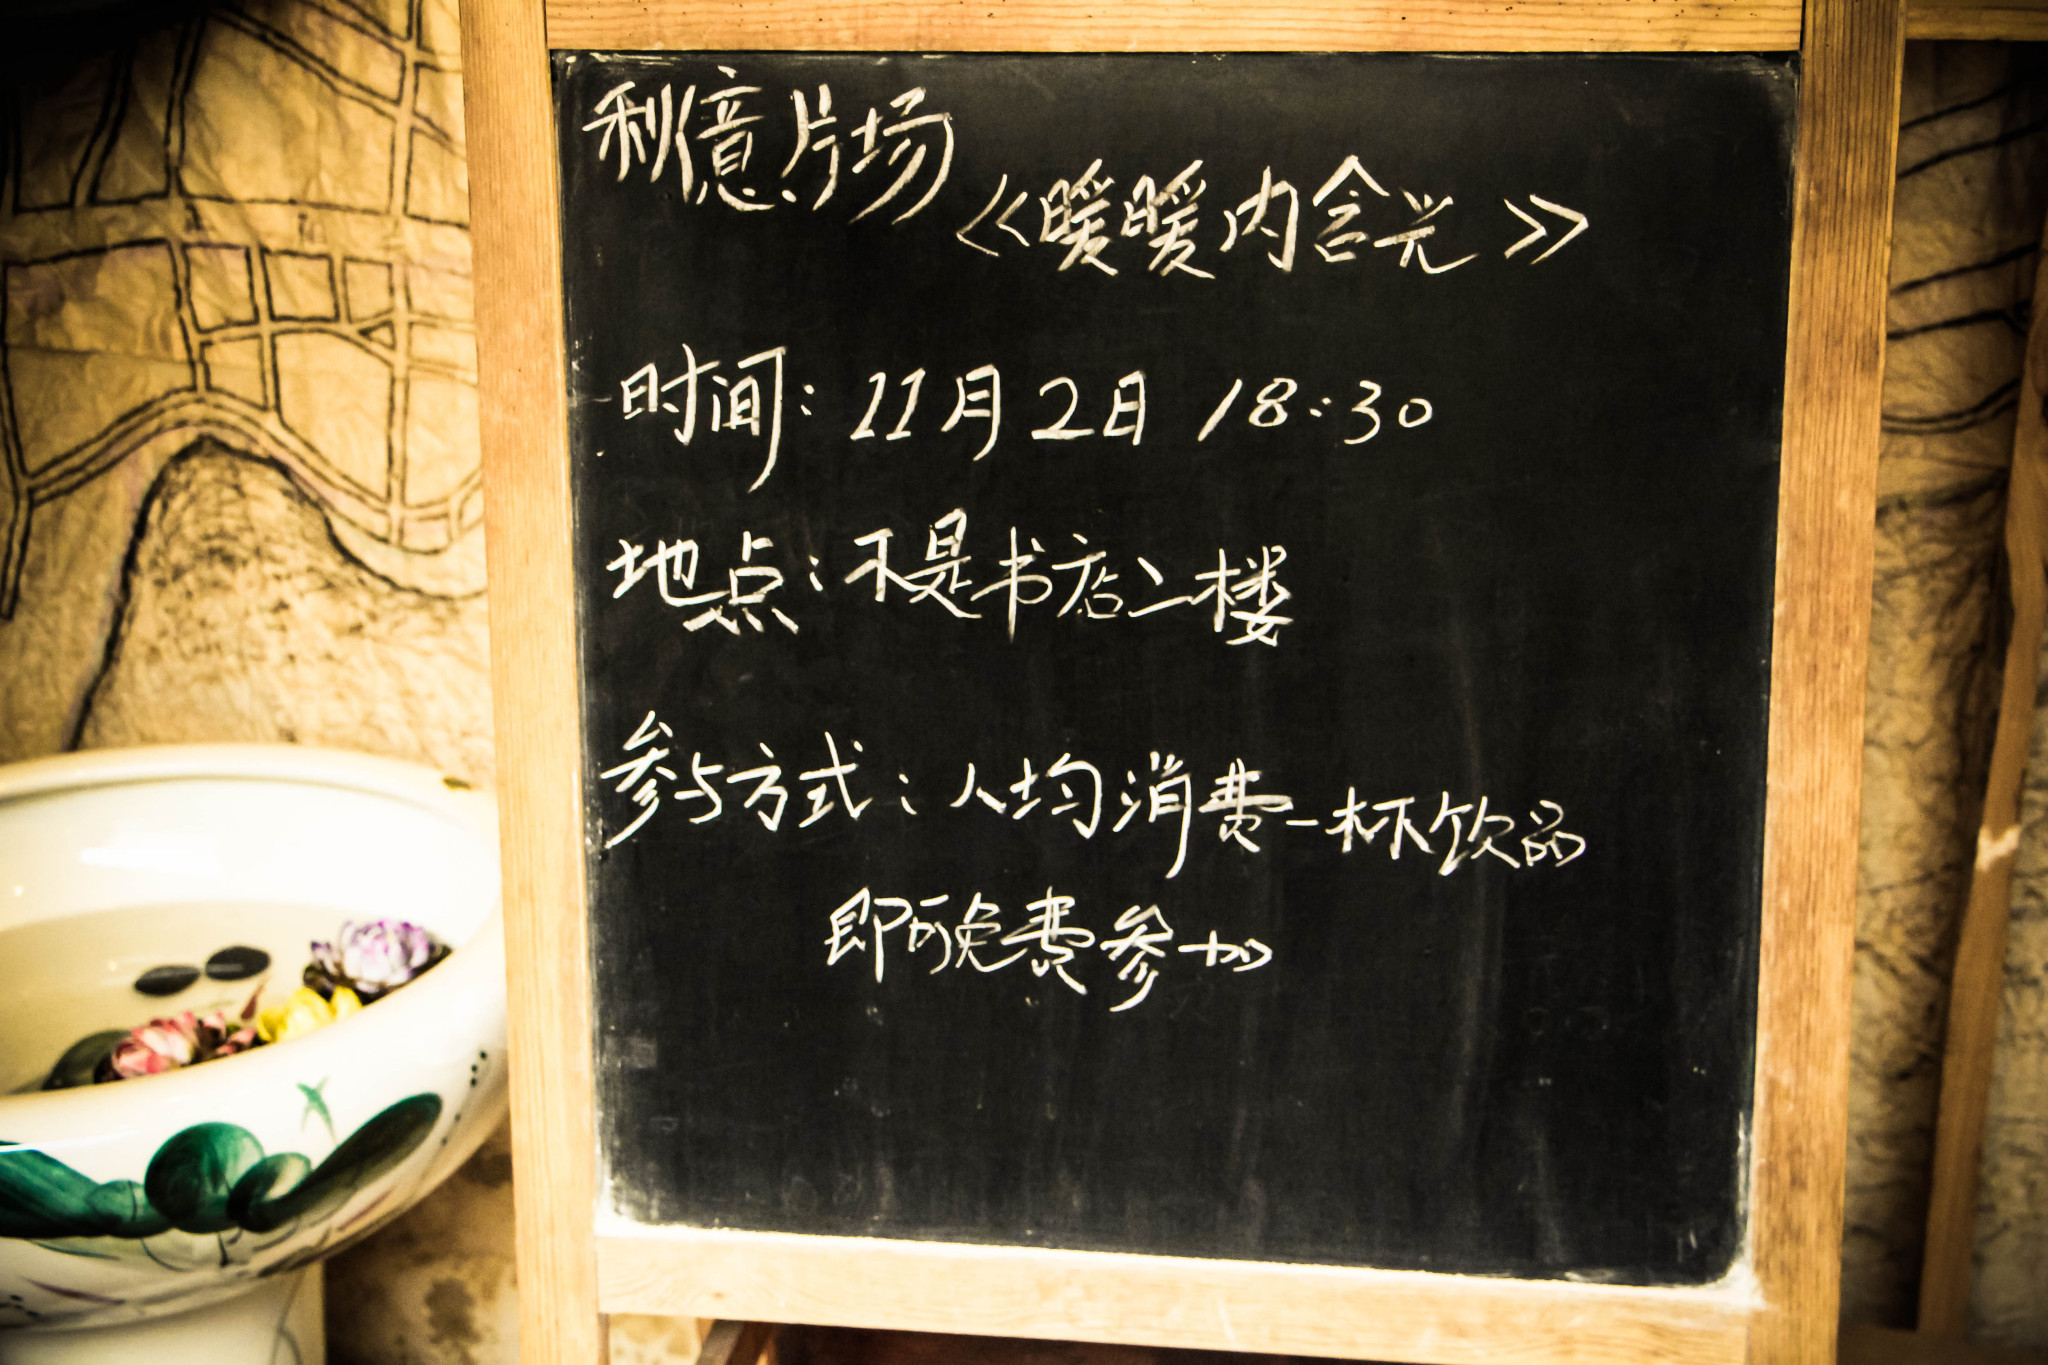 利億片场
《暖暖内含光》
时间：11月2日 18:30
地点：不是书店二楼
参与方式：人均消费一杯饮品
即可免费参加